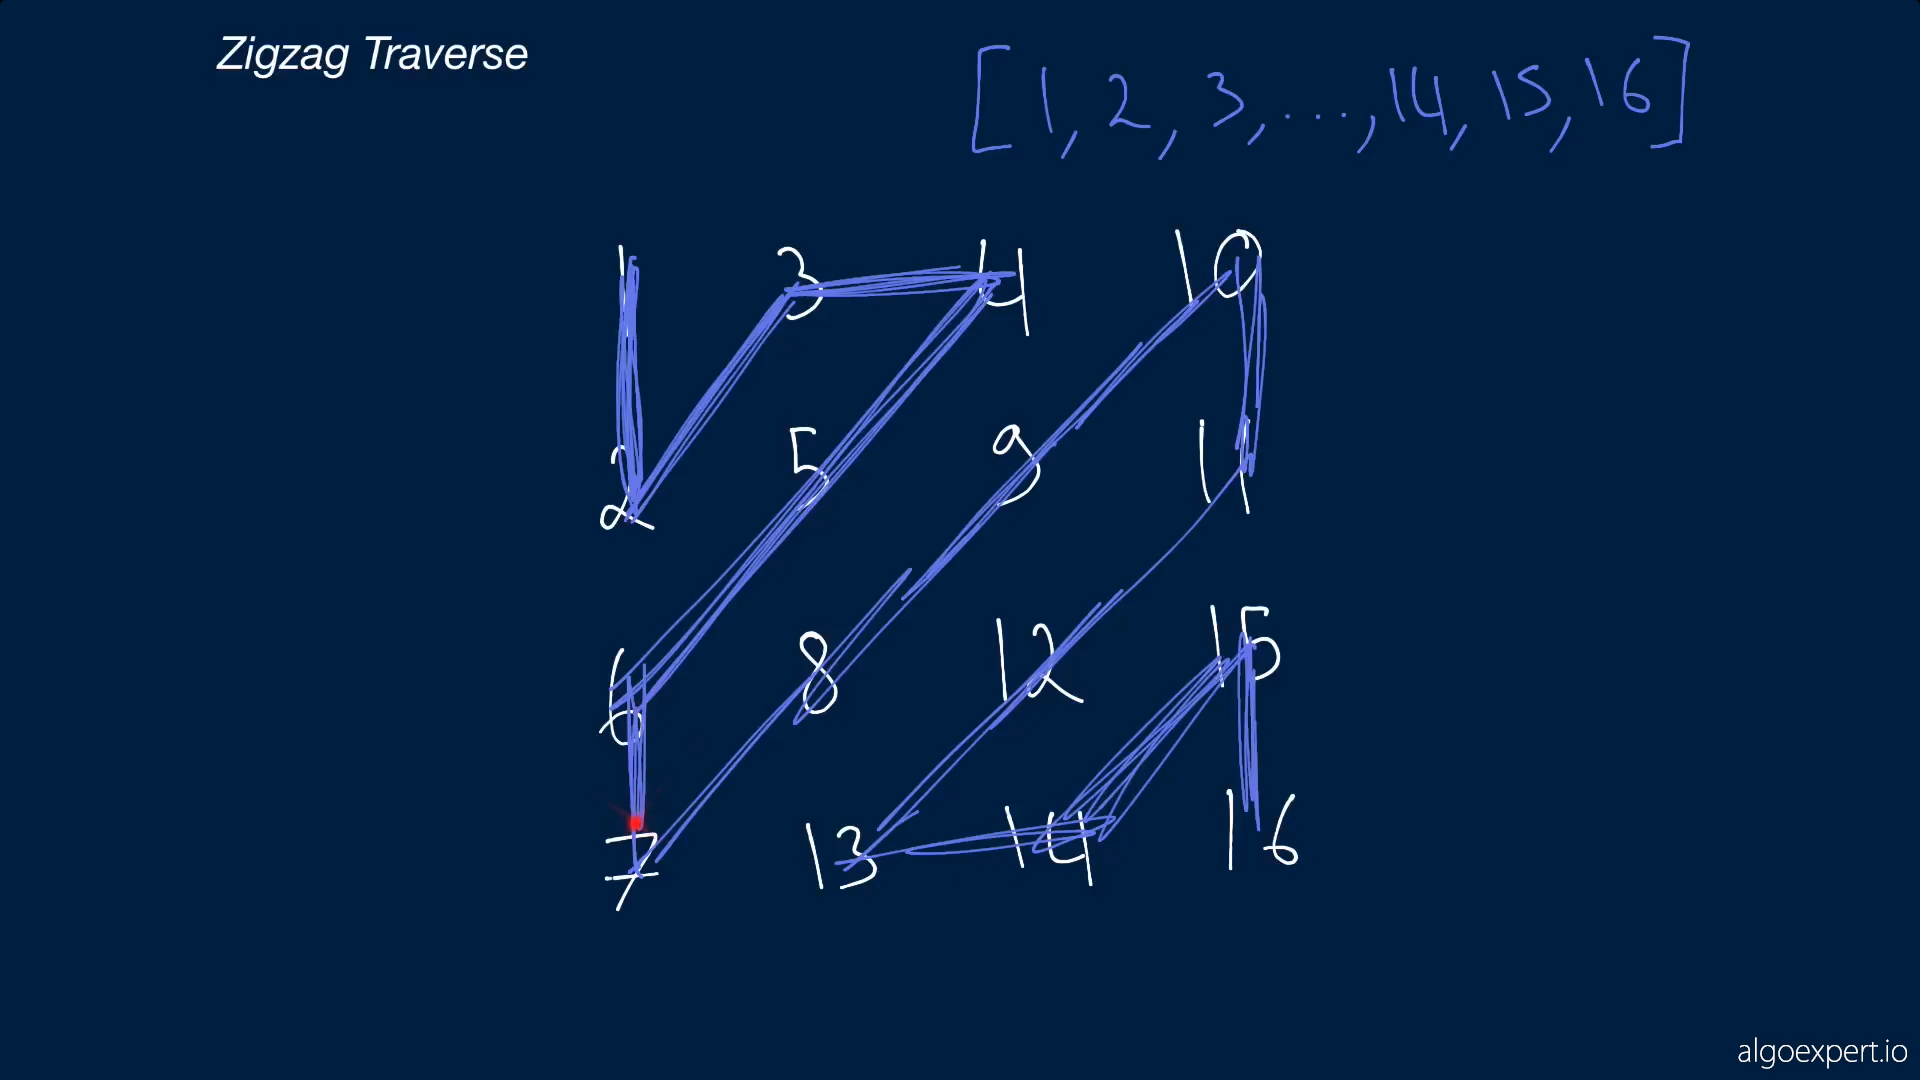 Zigzag Traverse
[1, 2, 3, ..., 14, 15, 16]
1 3 4 10
2 5 9 11
6 8 12 15
7 13 14 16
algoexpert.io